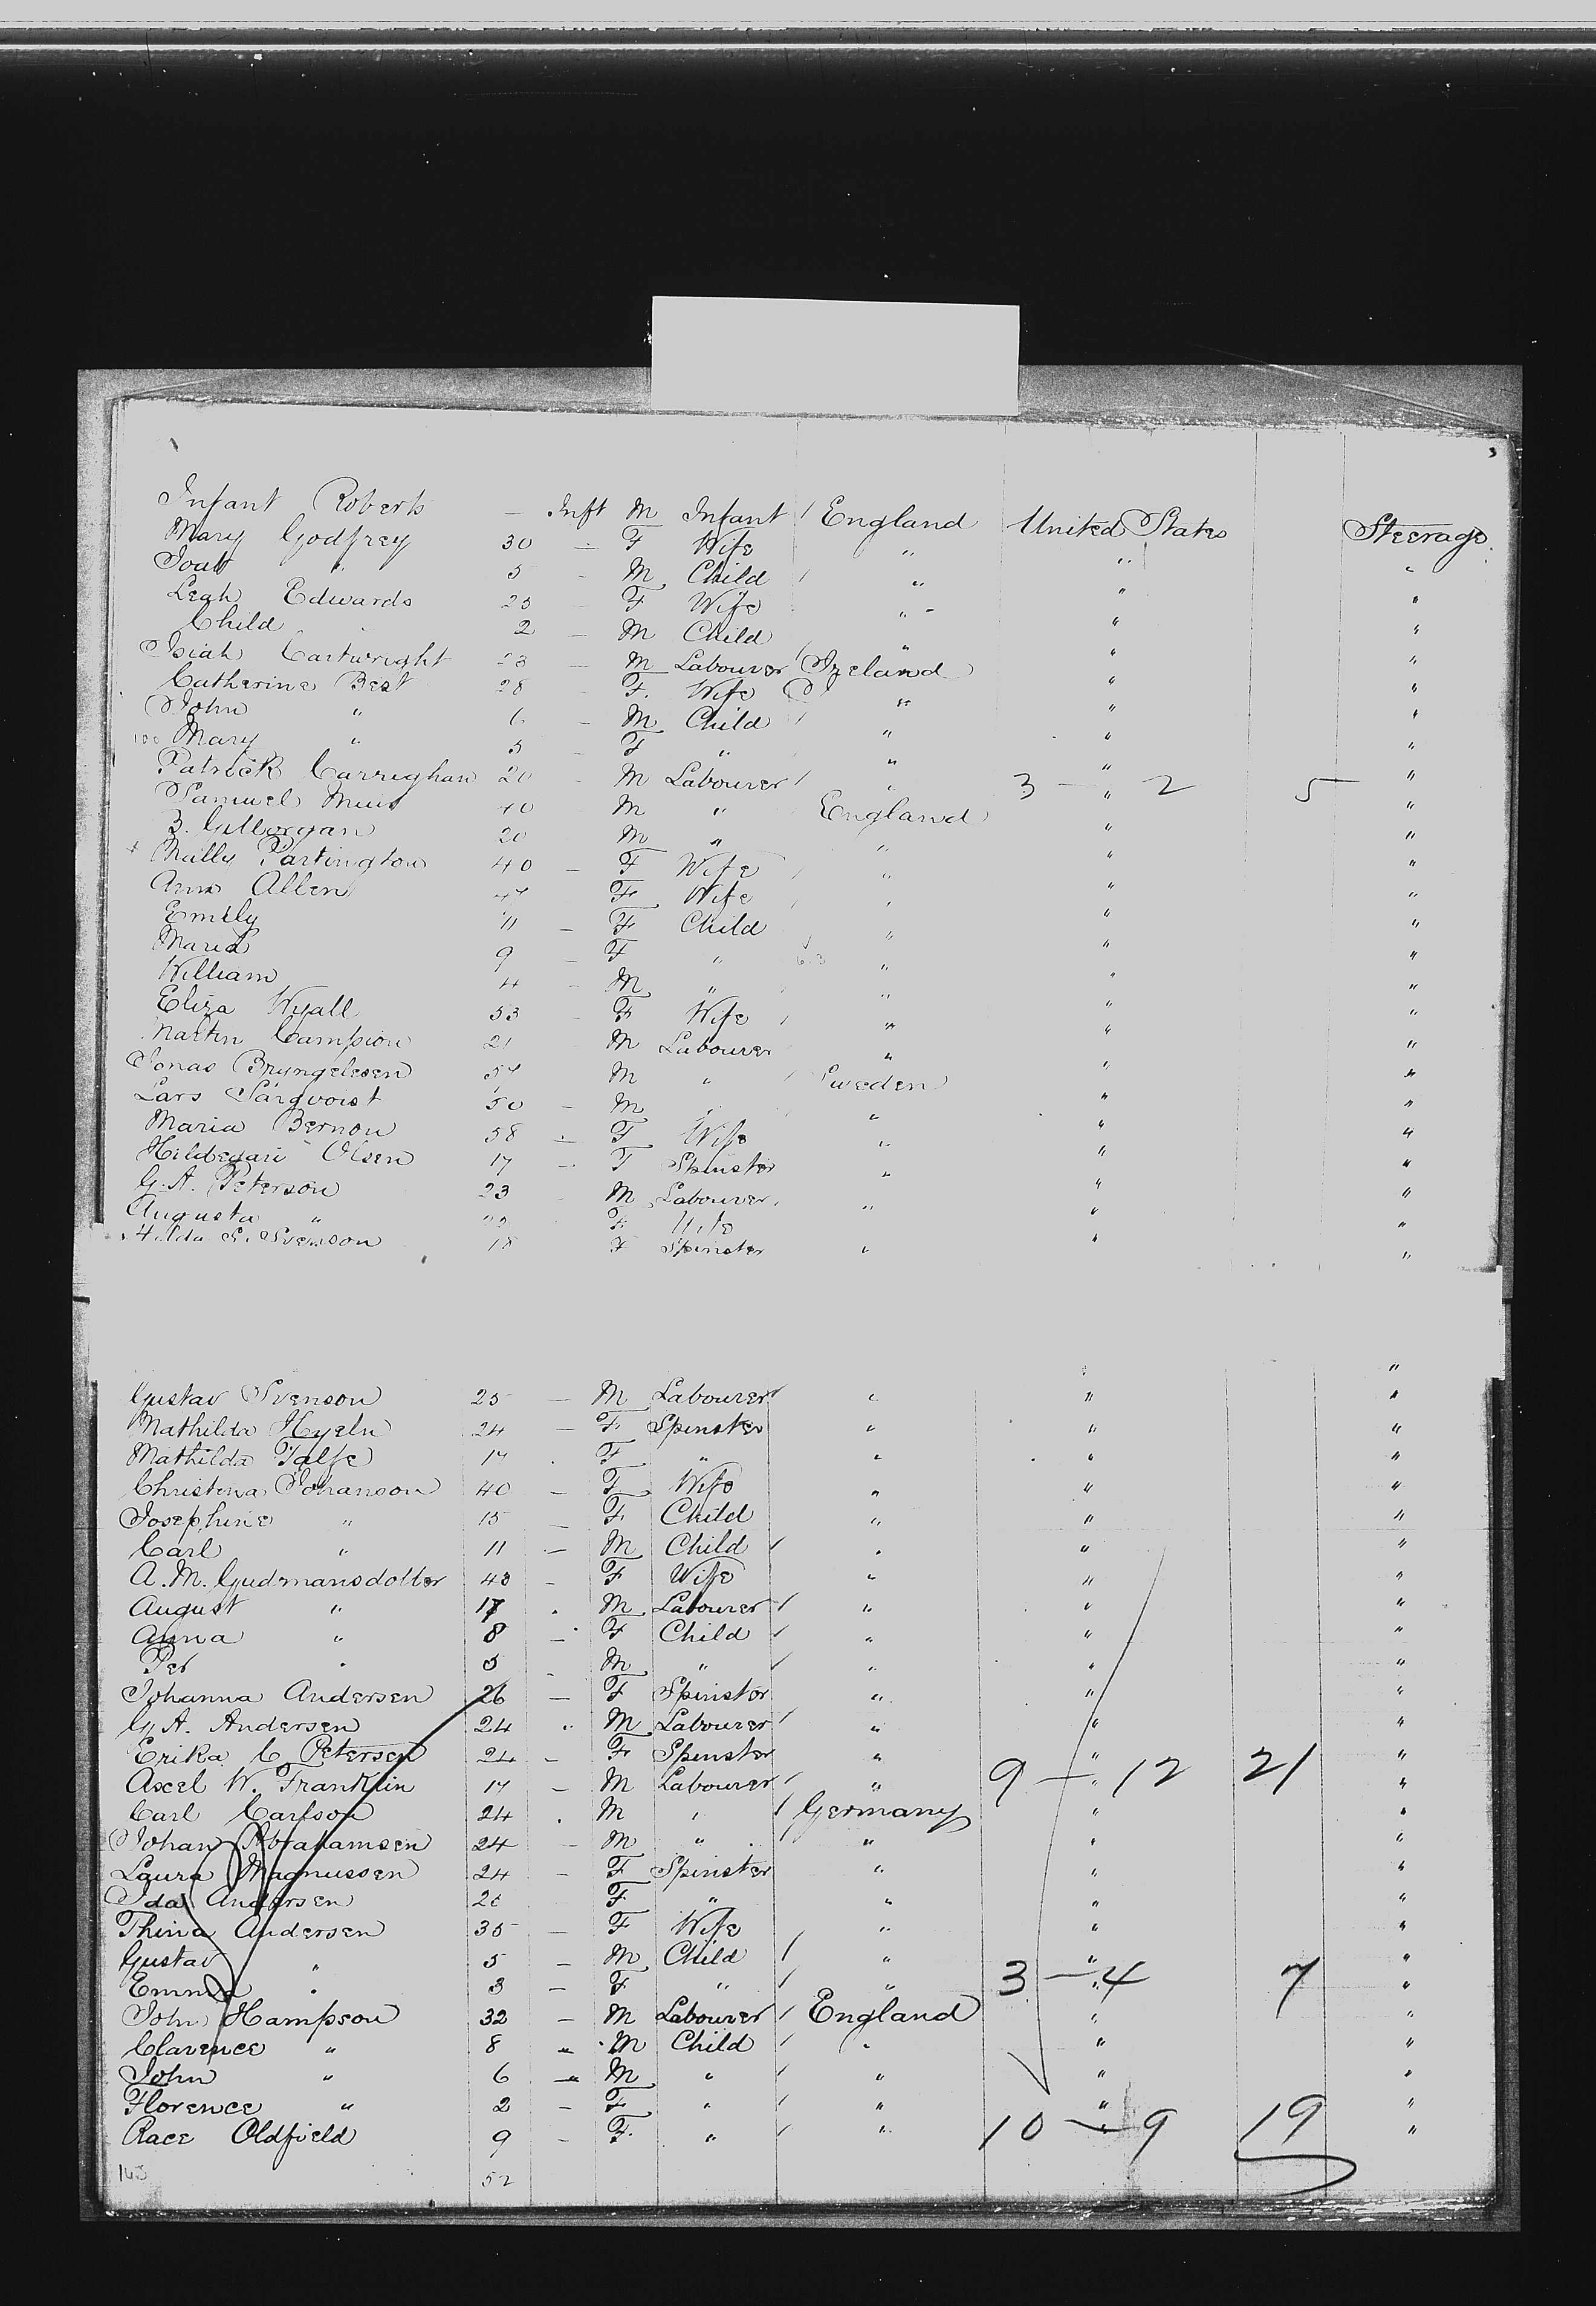 Infant Roberts — Inft M Infant England United States Steerage
Mary Godfrey 30 — F Wife " " "
" 5 - M Child " " "
Leah Edwards F Wife " " "
Child 2 — M Child " " "
Isiah Cartwright — M Labourer Ireland " "
Catherine Best 28 F. Wife " " "
John " 6 — M Child " " "
100 Mary " 5 F " " " "
Patrick Carrighan 20 M Labourer " 3 — 2 5 "
Samuel 40 M " England " "
20 M " " " "
Partington 40 — F Wife " " "
Ann Allen F Wife " " "
Emily 11 — F Child " " "
Maria 9 — F " " " "
William 4 — M " " " "
Eliza Wyall 53 F Wife " " "
Martin Campion 21 M Labourer " " "
Jonas Bryngelesen 57 M " Sweden " "
Lars 50 — M " " " "
Maria Bernon 38 — F Wife " " "
Olsen 17 - F Spinster " " "
G. A. Peterson 23 M Labourer " " "
Augusta " F Wife " " "
Hilda Svenson 18 F Spinster " " "
" "
Gustav Svenson 25 — M Labourer " " "
Mathilda 24 — F Spinster " " "
Mathilda 17 F " " " "
Christina Johanson 40 — F Wife " " "
Josephine " 15 — F Child " " "
Carl " 11 — M Child " " "
A. M. Gudmansdotter 43 — F Wife " " "
August " 17 M Labourer " " "
Anna " 8 — F Child " " "
Per " 5 - M " " " "
Johanna Andersen 26 — F Spinster " " "
G. A. Andersen 24 " M Labourer " " "
Erika C Petersen 24 — F Spinster " " "
Axel W. Franklin 17 — M Labourer " 9 — 12 21 "
Carl Carlson 24 . M " Germany " "
Johan Abrahamsen 24 — M " " " "
Laura Magnussen 24 — F Spinster " " "
Ida Andersen F " " " "
Thina Andersen 35 — F Wife " " "
Gustav " 5 — M Child " " "
Emma " 3 — F " " 3 — 4 7 "
John Hampson 32 — M Labourer England " "
Clarence " 8 " M Child " " "
John " 6 " M " " " "
Florence " 2 — F " " " "
Race Oldfield 9 — F. " " 10 — 9 19 "
52